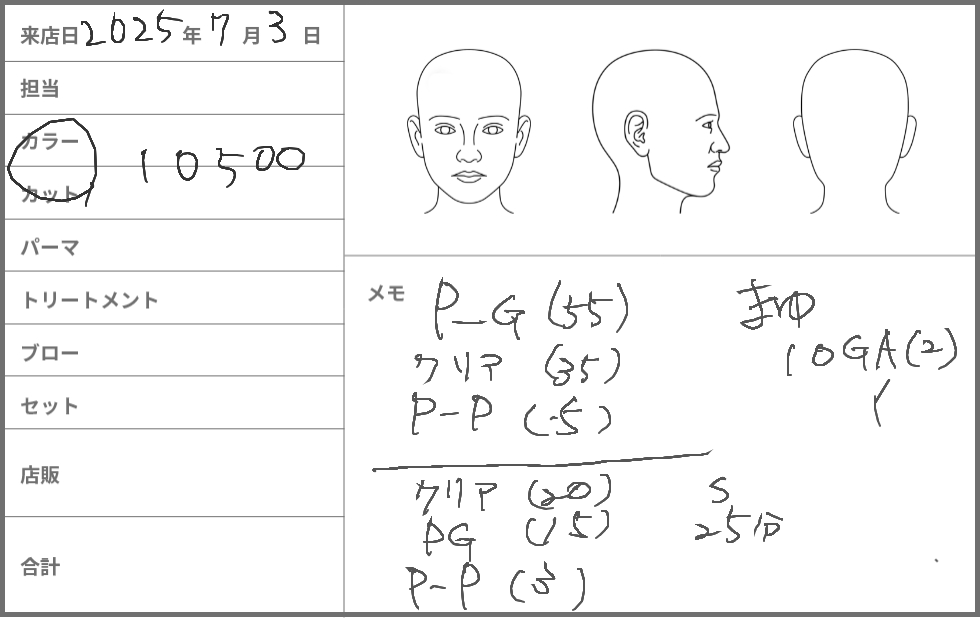 来店日 2025年 7月 3日
担当
カラー
カット
10500
パーマ
トリートメント
ブロー
セット
店販
合計
メモ
P-G (55)
クリア (35)
P-P (5)
クリア (20)
PG (15)
P-P (3)
まゆ
10GA(2)
S
25分